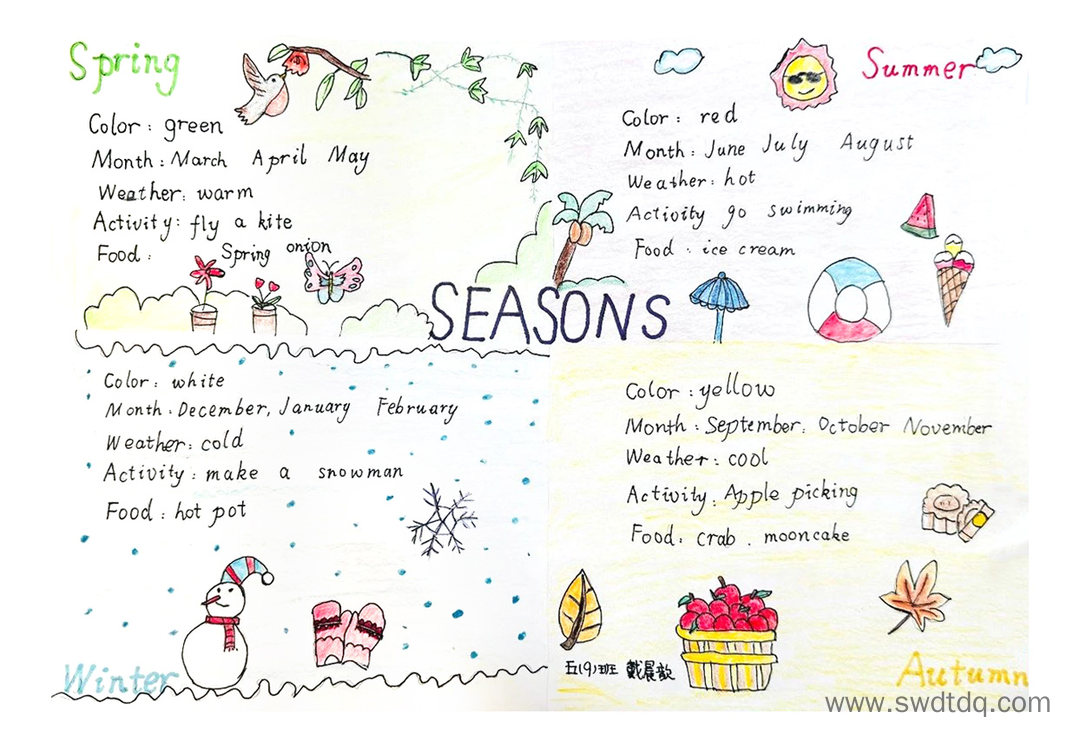 Spring
Color: green
Month: March April May
Weather: warm
Activity: fly a kite
Food: Spring onion
Summer
Color: red
Month: June July August
Weather: hot
Activity go swimming
Food: ice cream
SEASONS
Color: white
Month: December, January February
Weather: cold
Activity: make a snowman
Food: hot pot
Winter
Color: yellow
Month: September. October November
Weather: cool
Activity: Apple picking
Food: crab. mooncake
五(9)班 戴晨歆
Autumn
www.swdtdq.com